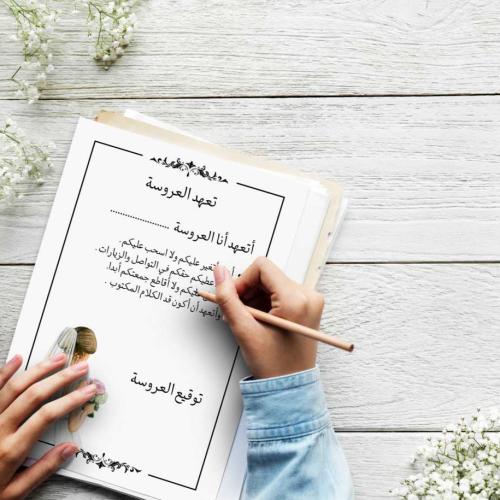 تعهد العروسة
أتعهد أنا العروسة ....................
أتغير عليكم ولا اسحب عليكم.
عطيكم حقكم في التواصل والزيارات.
عليكم ولا أقاطع جمعتكم أبدا.
وأتعهد أن أكون قد الكلام المكتوب .
توقيع العروسة